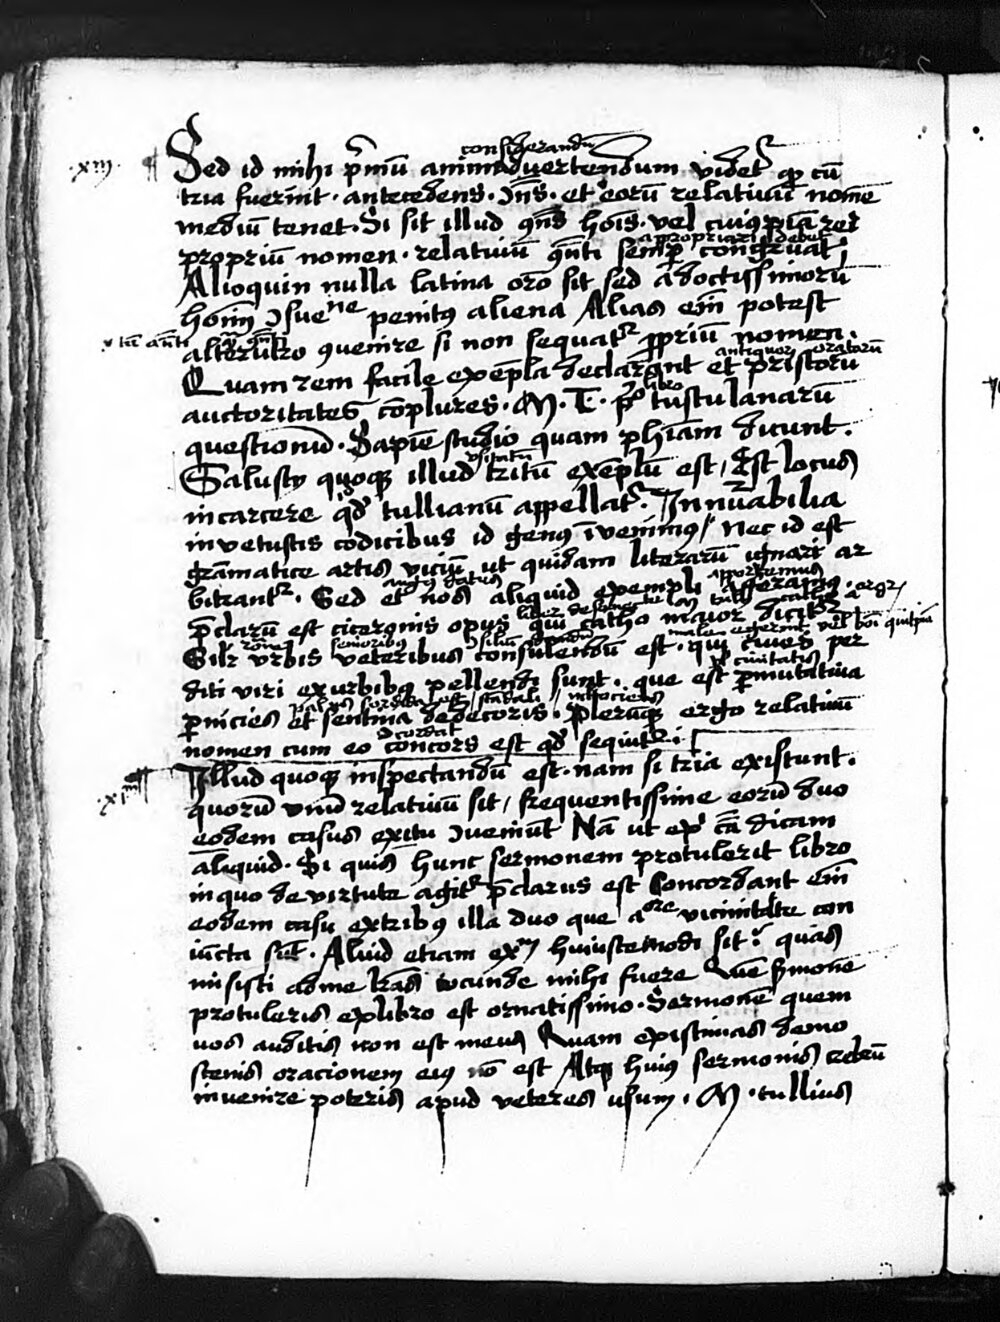 considerandū
.xiij. ¶ Sed id mihi p̄mū animadvertendum videt᷑ qp cū
tria fuerint · antecedens · 9ñs · et eorū relativuū nomē
mediū tenet · Si sit illud 9ñs hoīs · vel cuiuspiā rei
appropriari debet
propriū nomen · relativuū 9ñti semp̱ congruat ;
Alioquin nulla latina orō sit sed a doctissimorū
hoīm 9suetudīne penitus aliena Alias eīm potest
alterutro 9venire si non sequat᷑ ꝓpriū nomen ·
antiquoꝝ oratorū
Quam rem facile exēpla declarant et priscorū
libro
auctoritates cōplures · M · T · pº tusculanarū
questionū · Sapiē studio quam phiām dicunt ·
usitatū
Salusty quoqꝫ illud tritū exēplū est / Est locus
in carcere qd̓ tullianū appellat᷑ · Innūabilia
in vetustis codicibus id genus īvenimus / Nec id est
grāmatice artis viciū ut quidam literarū ignari ar
apportemus
bitrant᷑ · Sed et nos aliquid exempli afferamus ·
p̄clarū est ciceronis opus qui catho maior dicit᷑
senioribus
Silr urbis veteribus consulendū est · qui cives per
civitatis
diti viri ex urbibus pellendi sunt · que est p̱mutativa
p̱nicies et sentina dedecoris · plerūqꝫ ergo relativuū
9cordat
nomen cum eo concors est qd̓ sequit᷑ ;
.xiiij. ¶ Illud quoqꝫ inspectandū est · nam si tria existunt ·
quorū unū relativuū sit / frequentissime eorū duo
eodem casus exitu 9veniunt Nā ut exī cā dicam
aliquid · Si quis hunc sermonem protulerit libro
in quo de virtute agit᷑ p̄clarus est Concordant eīm
eodem casu ex tribus illa duo que a ore vicinitate con
iūcta sūt · Aliud etiam exm huiuscemodi sit · quas
misisti ad me lrās iocunde mihi fuere Quē s̓monē
protuleris ex libro est ornatissimo · Sermonē quem
vos auditis non est meus Quam existimas demo
stenis oracionem eius nō est Atqꝫ huius sermonis crebrū
invenire poteris apud veteres usum · M · tullius